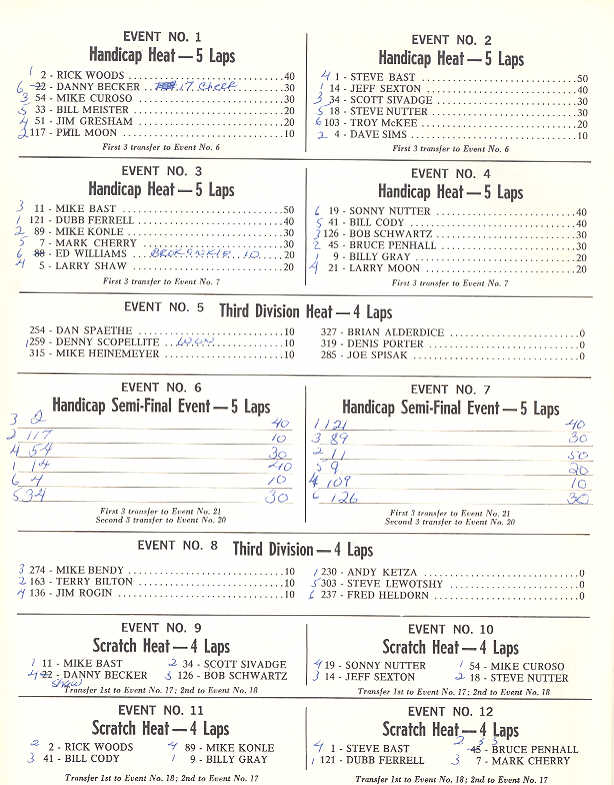 EVENT NO. 1
Handicap Heat — 5 Laps
1 2 - RICK WOODS 40
6 22 - DANNY BECKER 30
3 54 - MIKE CUROSO 30
5 33 - BILL MEISTER 20
4 51 - JIM GRESHAM 20
2 117 - PHIL MOON 10
First 3 transfer to Event No. 6
EVENT NO. 2
Handicap Heat — 5 Laps
4 1 - STEVE BAST 50
1 14 - JEFF SEXTON 40
3 34 - SCOTT SIVADGE 30
5 18 - STEVE NUTTER 30
6 103 - TROY McKEE 20
2 4 - DAVE SIMS 10
First 3 transfer to Event No. 6
EVENT NO. 3
Handicap Heat — 5 Laps
3 11 - MIKE BAST 50
1 121 - DUBB FERRELL 40
2 89 - MIKE KONLE 30
5 7 - MARK CHERRY 30
6 88 - ED WILLIAMS 20
4 5 - LARRY SHAW 20
First 3 transfer to Event No. 7
EVENT NO. 4
Handicap Heat — 5 Laps
6 19 - SONNY NUTTER 40
5 41 - BILL CODY 40
3 126 - BOB SCHWARTZ 30
2 45 - BRUCE PENHALL 30
1 9 - BILLY GRAY 20
4 21 - LARRY MOON 20
First 3 transfer to Event No. 7
EVENT NO. 5 Third Division Heat — 4 Laps
254 - DAN SPAETHE 10
1 259 - DENNY SCOPELLITE 10
315 - MIKE HEINEMEYER 10
327 - BRIAN ALDERDICE 0
319 - DENIS PORTER 0
285 - JOE SPISAK 0
EVENT NO. 6
Handicap Semi-Final Event — 5 Laps
3 2 40
2 117 10
4 54 30
1 14 40
6 4 10
5 34 30
First 3 transfer to Event No. 21
Second 3 transfer to Event No. 20
EVENT NO. 7
Handicap Semi-Final Event — 5 Laps
1 121 40
3 89 30
2 11 50
5 9 20
4 109 10
6 126 30
First 3 transfer to Event No. 21
Second 3 transfer to Event No. 20
EVENT NO. 8 Third Division — 4 Laps
3 274 - MIKE BENDY 10
2 163 - TERRY BILTON 10
4 136 - JIM ROGIN 10
1 230 - ANDY KETZA 0
5 303 - STEVE LEWOTSHY 0
6 237 - FRED HELDORN 0
EVENT NO. 9
Scratch Heat — 4 Laps
1 11 - MIKE BAST 2 34 - SCOTT SIVADGE
4 22 - DANNY BECKER 3 126 - BOB SCHWARTZ
Transfer 1st to Event No. 17; 2nd to Event No. 18
EVENT NO. 10
Scratch Heat — 4 Laps
4 19 - SONNY NUTTER 1 54 - MIKE CUROSO
3 14 - JEFF SEXTON 2 18 - STEVE NUTTER
Transfer 1st to Event No. 17; 2nd to No. 18
EVENT NO. 11
Scratch Heat — 4 Laps
2 2 - RICK WOODS 4 89 - MIKE KONLE
3 41 - BILL CODY 1 9 - BILLY GRAY
Transfer 1st to Event No. 18; 2nd to Event No. 17
EVENT NO. 12
Scratch Heat — 4 Laps
4 1 - STEVE BAST 2 45 - BRUCE PENHALL
1 121 - DUBB FERRELL 3 7 - MARK CHERRY
Transfer 1st to Event No. 18; 2nd to Event No. 17